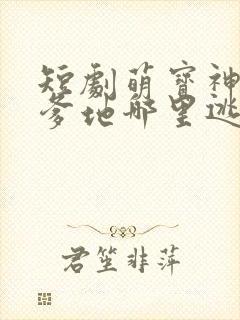 短劇萌寶神
爹地哪里逃
君笙非萍